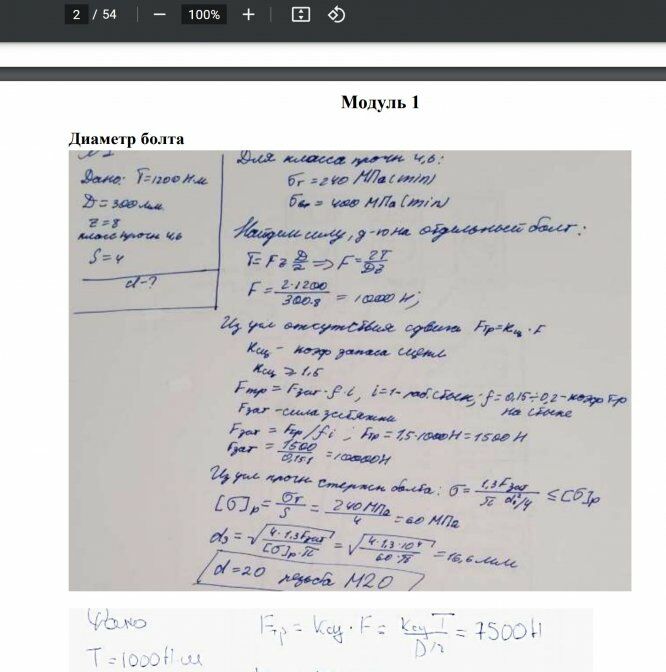 2 / 54 — 100% +
Модуль 1
Диаметр болта
Дано: T=1200 Н·м
D=300мм
z=8
класс прочн 4,6
S=4
d-?
Для класса прочн 4,6:
σт=240 МПа(min)
σвр=400 МПа(min)
Найдем силу, д-ю на отдельный болт:
T=Fz D/2 ⇒ F=2T/Dz
F=2·1200/300·8=1000Н;
Из усл отсутствия сдвига Fтр=Kсц·F
Kсц - коэф запаса сцепл
Kсц ≥ 1,5
Fтр=Fзат·f·i, i=1-раб.стык; f=0,15÷0,2-коэф тр
на стыке
Fзат-сила затяжки
Fзат=Fтр/fi; Fтр=1,5·1000Н=1500Н
Fзат=1500/0,15·1=10000Н
Из усл прочн стержн болта: σ=1,3Fзат/π d₃²/4 ≤[σ]р
[σ]р=σт/S=240МПа/4=60 МПа
d₃=√4·1,3Fзат/[σ]р·π=√4·1,3·10⁴/60·π=16,6мм
d=20 резьба М20
Дано
Fтр=Kсц·F=KсцT/Dz=7500Н
T=1000Н·м